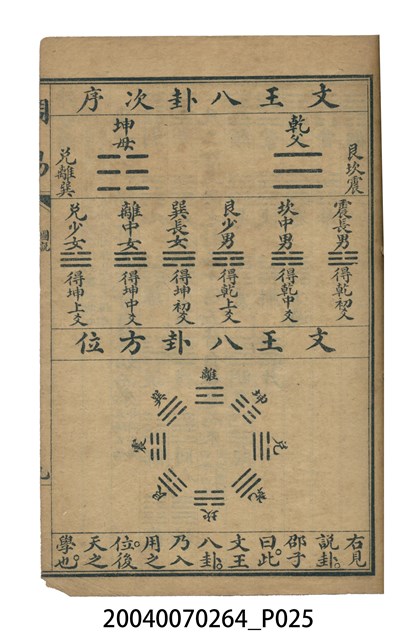 文王八卦次序
乾父
坤母
艮坎震
兌離巽
震長男
得乾初爻
坎中男
得乾中爻
艮少男
得乾上爻
巽長女
得坤初爻
離中女
得坤中爻
兌少女
得坤上爻
文王八卦方位
離
坤
兌
乾
坎
艮
震
巽
右見
說卦。
邵子
曰。此
文王
八卦。
乃入
用之
位。後
天之
學也。
20040070264_P025